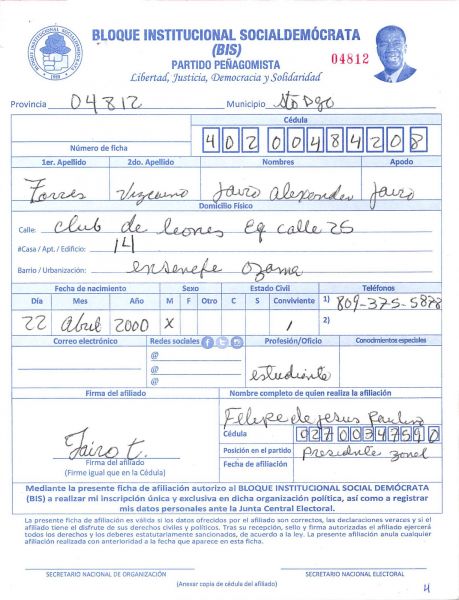 BLOQUE INSTITUCIONAL SOCIALDEMÓCRATA
(BIS)
PARTIDO PEÑAGOMISTA
04812
Libertad, Justicia, Democracia y Solidaridad
Provincia 04812 Municipio Sto Dgo
Cédula
Número de ficha 402 0048420 8
1er. Apellido 2do. Apellido Nombres Apodo
Torres Vizcaino Jairo Alexander Jairo
Domicilio Físico
Calle: Club de leones Eq calle 25
#Casa / Apt. / Edificio: 14
Barrio / Urbanización: ensenefe Ozama
Fecha de nacimiento Sexo Estado Civil Teléfonos
Día Mes Año M F Otro C S Conviviente 1) 809-375-5878
22 Abril 2000 X / 2)
Correo electrónico Redes sociales Profesión/Oficio Conocimientos especiales
@
@
@
estudiante
Firma del afiliado Nombre completo de quien realiza la afiliación
Felipe de Jesus
Cédula 027 0034759 0
Jairo t. Posición en el partido Presidente zonal
Firma del afiliado Fecha de afiliación
(Firme igual que en la Cédula)
Mediante la presente ficha de afiliación autorizo al BLOQUE INSTITUCIONAL SOCIAL DEMÓCRATA
(BIS) a realizar mi inscripción única y exclusiva en dicha organización política, así como a registrar
mis datos personales ante la Junta Central Electoral.
La presente ficha de afiliación es válida si los datos ofrecidos por el afiliado son correctos, las declaraciones veraces y si el
afiliado tiene el disfrute de sus derechos civiles y políticos. Tras su recepción, sello y firma autorizadas el afiliado ejercerá
todos los derechos y los deberes estatutariamente sancionados, de acuerdo a la ley. La presente afiliación anula cualquier
afiliación realizada con anterioridad a la fecha que aparece en esta ficha.
SECRETARIO NACIONAL DE ORGANIZACIÓN SECRETARIO NACIONAL ELECTORAL
(Anexar copia de cédula del afiliado)
4